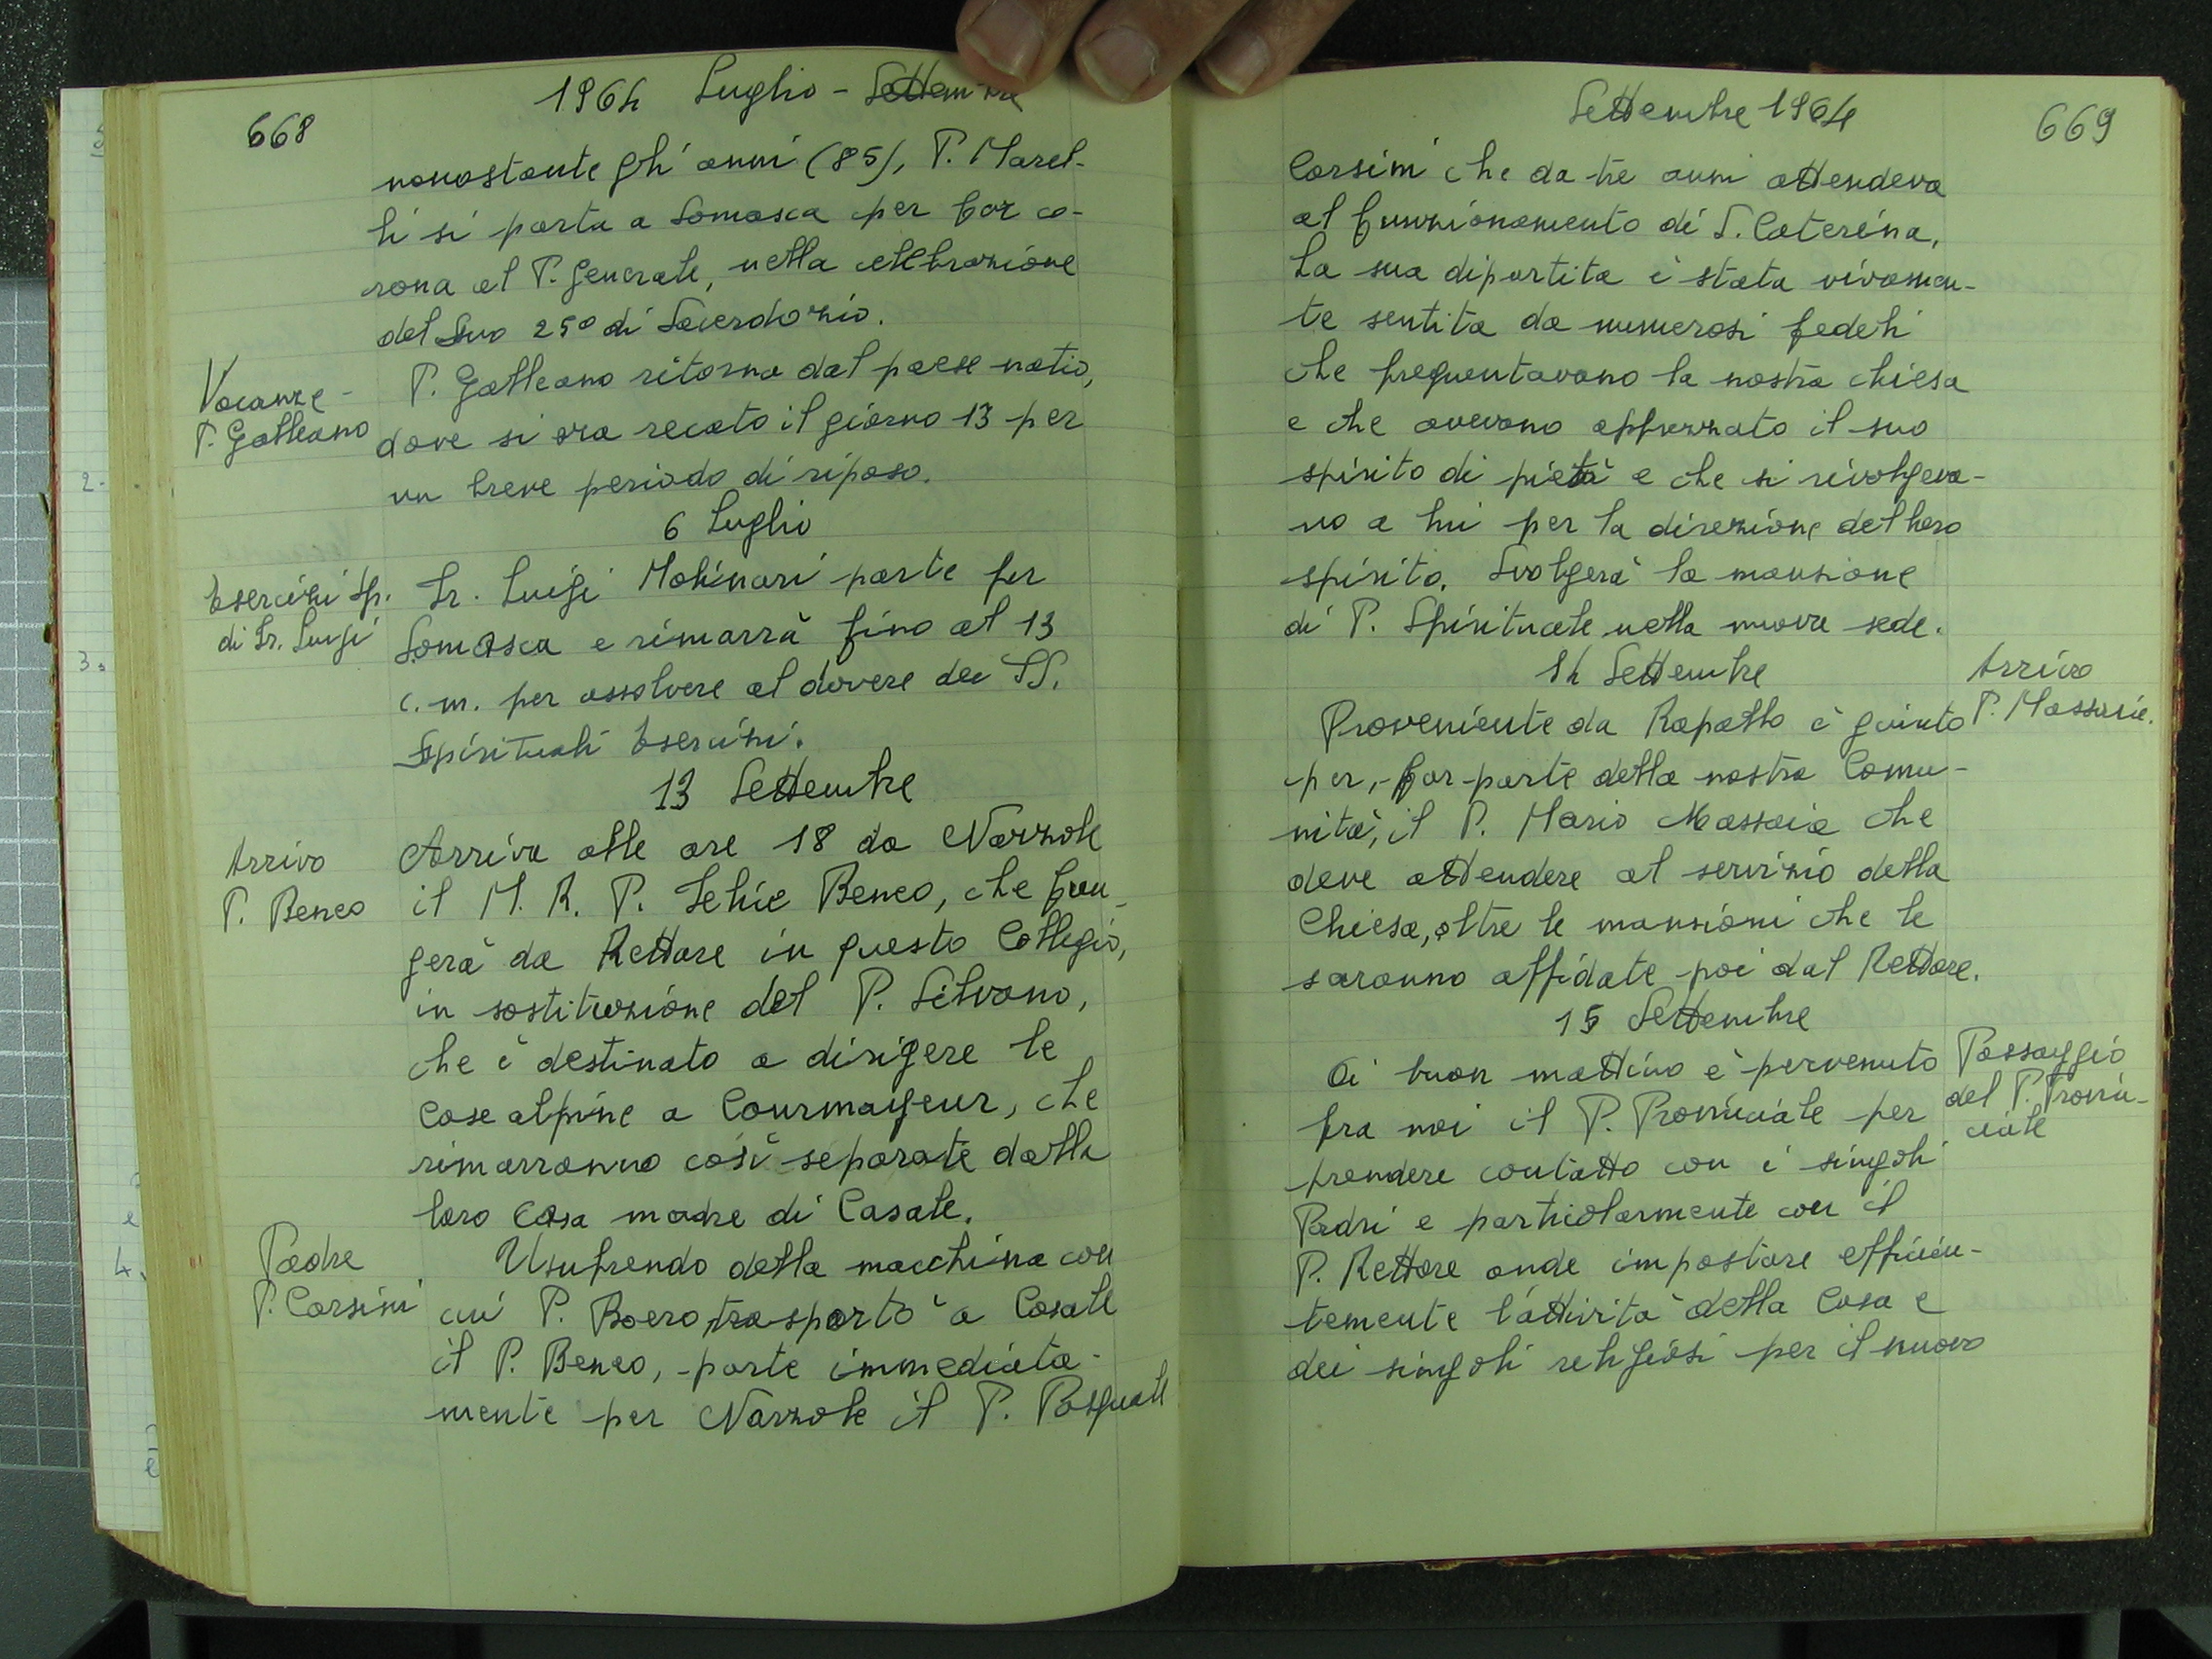 668
1964 Luglio - Settembre
nonostante gli anni (85), P. Marel-
li si porta a Somasca per far co-
rona al P. Generale, nella celebrazione
del Suo 25° di Sacerdozio.
Vacanze -
P. Galleano
P. Galleano ritorna dal paese natio,
dove si era recato il giorno 13 per
un breve periodo di riposo.
6 Luglio
Esercizi Sp.
di Fr. Luigi
Fr. Luigi Molinari parte per
Somasca e rimarrà fino al 13
c.m. per assolvere al dovere dei SS.
Spirituali Esercizi.
13 Settembre
Arrivo
P. Beneo
Arriva alle ore 18 da Narzole
il M. R. P. Felice Beneo, che fun-
gerà da Rettore in questo Collegio,
in sostituzione del P. Silvano,
che è destinato a dirigere le
Case alpine a Courmayeur, che
rimarranno così separate dalla
loro Casa madre di Casale.
Padre
P. Corsini
Usufrendo della macchina con
cui P. Boero trasportò a Casale
il P. Beneo, parte immediata-
mente per Narzole il P. Pasquale
Settembre 1964
669
Corsini che da tre anni attendeva
al funzionamento di S. Caterina.
La sua dipartita è stata vivamen-
te sentita da numerosi fedeli
che frequentavano la nostra chiesa
e che avevano apprezzato il suo
spirito di pietà e che si rivolgeva-
no a lui per la direzione del loro
spirito. Svolgerà la mansione
di P. Spirituale nella nuova sede.
14 Settembre
Arrivo
P. Massaia.
Proveniente da Rapallo è giunto
per, far parte della nostra Comu-
nità, il P. Mario Massaia che
deve attendere al servizio della
Chiesa, oltre le mansioni che le
saranno affidate poi dal Rettore.
15 Settembre
Passaggio
del P. Provin-
ciale
Di buon mattino è pervenuto
fra noi il P. Provinciale per
prendere contatto con i singoli
Padri e particolarmente con il
P. Rettore onde impostare efficien-
temente l'attività della Casa e
dei singoli religiosi per il nuovo